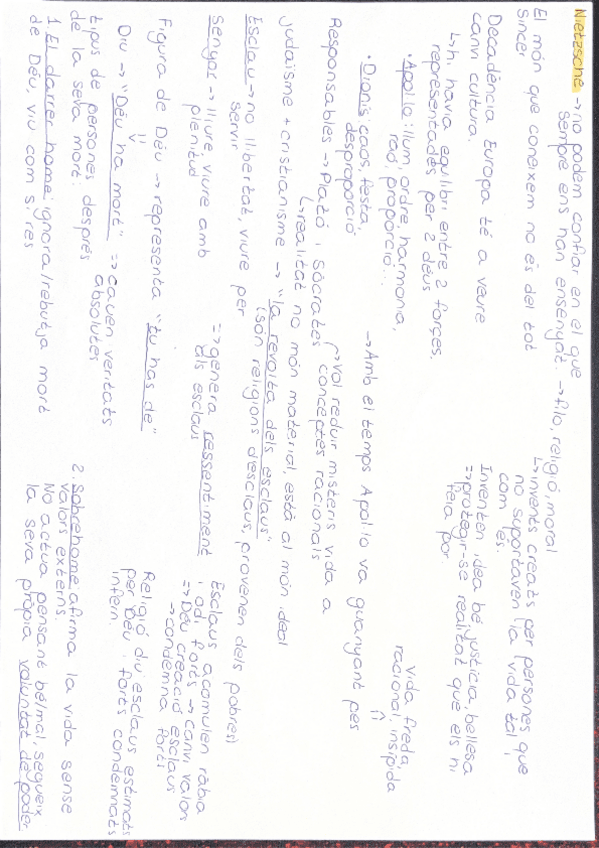 Nietzsche → no podem confiar en el que
sempre ens han ensenyat. → filo, religió, moral
↳ invents creats per persones que
no suportaven la vida tal i
com és.
El món que coneixem no és del tot
sincer
Inventen idea bé, justícia, bellesa
⇒ protegir-se realitat que els hi
feia por.
Decadència Europa té a veure
canvi cultura.
↳ h. havia equilibri entre 2 forçes,
representades per 2 déus
• Apol·lo: llum, ordre, harmonia,
raó, proporció...
• Dionís: caos, festa,
desproporció
→ Amb el temps Apol·lo va guanyant pes
⇓
vida freda,
racional, insípida
Responsables → Plató i Sòcrates
→ vol reduir misteris vida a
conceptes racionals
↳ realitat no món material, està al món ideal
judaïsme + cristianisme → "la revolta dels esclaus"
(són religions d'esclaus, provenen dels pobres)
Esclau → no llibertat, viure per
servir
Senyor → lliure, viure amb
plenitud
⇒ genera ressentiment
als esclaus
Esclaus acumulen ràbia
i odi forts → canvi valors
⇒ Déu creació esclaus
→ condemna forts
Figura de Déu → representa "tu has de"
Religió diu esclaus estimats
per Déu i forts condemnats
infern.
Diu → "Déu ha mort" ⇒ cauen veritats
absolutes
⇓
tipus de persones després
de la seva mort:
1. El darrer home: ignora/rebutja mort
de Déu, viu com si res
2. Sobrehome: afirma la vida sense
valors externs.
No actua pensant bé/mal, segueix
la seva pròpia voluntat de poder